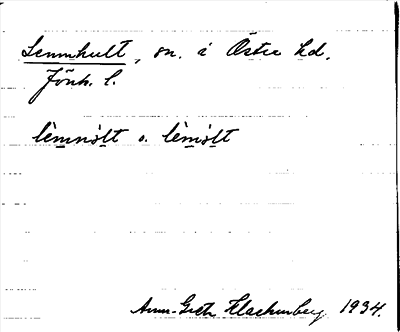 Lemmhult, sn. i Östra hd.
Jönk. l.
lèmnòlt o. lèmòlt
Ann-Greta Klackenberg 1934.